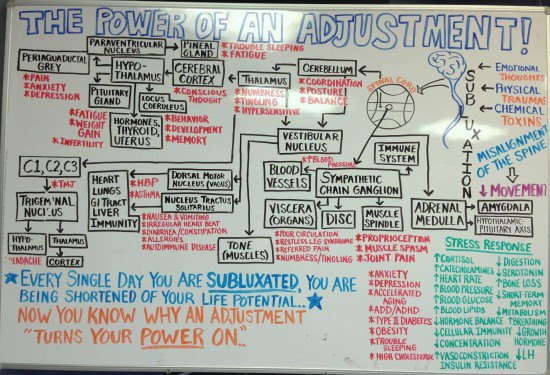 THE POWER OF AN ADJUSTMENT!
PARAVENTRICULAR
NUCLEUS
PINEAL
GLAND
* TROUBLE SLEEPING
* FATIGUE
PERIAQUADUCTAL
GREY
* PAIN
* ANXIETY
* DEPRESSION
HYPO-
THALAMUS
CEREBRAL
CORTEX
* CONSCIOUS
THOUGHT
THALAMUS
* NUMBNESS
* TINGLING
* HYPERSENSITIVE
CEREBELLUM
* COORDINATION
* POSTURE
* BALANCE
SPINAL CORD
SUBLUXATION
EMOTIONAL
THOUGHTS
PHYSICAL
TRAUMAS
CHEMICAL
TOXINS
MISALIGNMENT
OF THE SPINE
↓ MOVEMENT
PITUITARY
GLAND
LOCUS
COERULEUS
* FATIGUE
* WEIGHT
GAIN
* INFERTILITY
HORMONES,
THYROID,
UTERUS
* BEHAVIOR
* DEVELOPMENT
* MEMORY
VESTIBULAR
NUCLEUS
* BLOOD
PRESSURE
IMMUNE
SYSTEM
C1, C2, C3
* TMJ
TRIGEMINAL
NUCLEUS
HYPO-
THALAMUS
THALAMUS
HEADACHE
CORTEX
HEART
LUNGS
GI TRACT
LIVER
IMMUNITY
* HBP
* ASTHMA
DORSAL MOTOR
NUCLEUS (VAGUS)
NUCLEUS TRACTUS
SOLITARIUS
* NAUSEA & VOMITING
* IRREGULAR HEART BEAT
* DIARRHEA/CONSTIPATION
* ALLERGIES
* AUTOIMMUNE DISEASE
TONE
(MUSCLES)
BLOOD
VESSELS
SYMPATHETIC
CHAIN GANGLION
VISCERA
(ORGANS)
DISC
MUSCLE
SPINDLE
ADRENAL
MEDULLA
AMYGDALA
HYPOTHALAMIC-
PITUITARY AXIS
* POOR CIRCULATION
* RESTLESS LEG SYNDROME
* REFERRED PAIN
* NUMBNESS/TINGLING
* PROPRIOCEPTION
* MUSCLE SPASM
* JOINT PAIN
* ANXIETY
* DEPRESSION
* ACCELERATED
AGING
* ADD/ADHD
* TYPE II DIABETES
* OBESITY
* TROUBLE
SLEEPING
* HIGH CHOLESTEROL
STRESS RESPONSE
↑ CORTISOL
↑ CATECHOLAMINES
↑ HEART RATE
↑ BLOOD PRESSURE
↑ BLOOD GLUCOSE
↑ BLOOD LIPIDS
↓ HORMONE BALANCE
↓ CELLULAR IMMUNITY
↓ CONCENTRATION
↑ VASOCONSTRICTION
INSULIN RESISTANCE
↓ DIGESTION
↓ SEROTONIN
↑ BONE LOSS
↓ SHORT-TERM
MEMORY
↓ METABOLISM
↑ BREATHING
↓ GROWTH
HORMONE
↓ LH
★ EVERY SINGLE DAY YOU ARE SUBLUXATED, YOU ARE
BEING SHORTENED OF YOUR LIFE POTENTIAL... ★
NOW YOU KNOW WHY AN ADJUSTMENT
"TURNS YOUR POWER ON"..